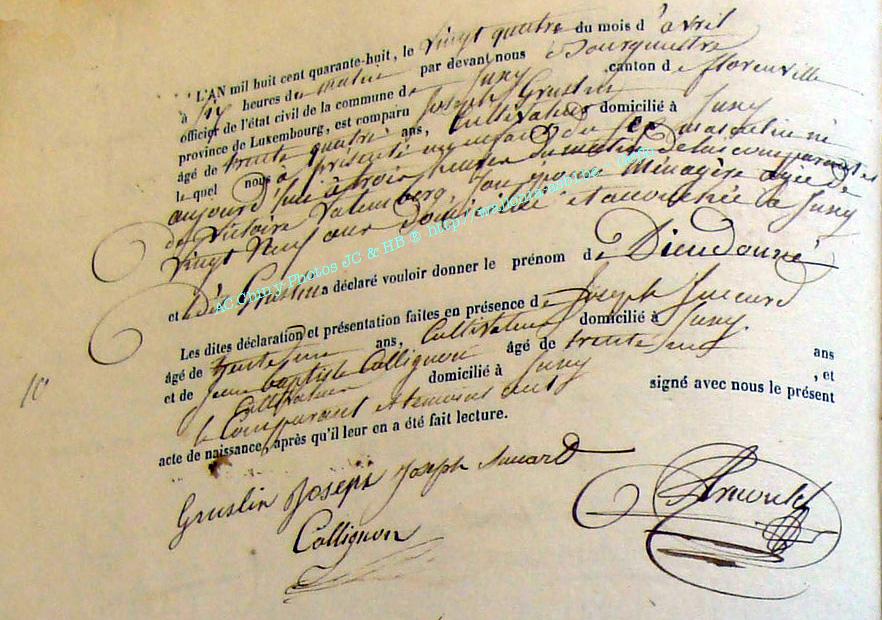 L'AN mil huit cent quarante-huit, le vingt quatre du mois d'avril
à six heures du matin par devant nous Bourgmestre
officier de l'état civil de la commune de Juny canton de florenville
province de Luxembourg, est comparu Joseph Gruslin
âgé de trente quatre ans, Cultivateur domicilié à Juny
le quel nous a présenté un enfant du sex masculin né
aujourd'hui à trois heures du matin de lui comparant et
de Victoire Valemberg son épouse Ménagère agée de
vingt Neuf ans Domiciliée et accouchée à Juny
et dit Gruslin a déclaré vouloir donner le prénom de Dieudonné
Les dites déclaration et présentation faites en présence de Joseph
âgé de trente ans, Cultivateur domicilié à Juny
et de Jean baptiste Collignon âgé de trente ans
Cultivateur domicilié à Juny , et
le Comparant et temoins ont signé avec nous le présent
acte de naissance, après qu'il leur en a été fait lecture.
Gruslin Joseph Joseph
Collignon
10
AC Chiny Photos JC & HB ® http://